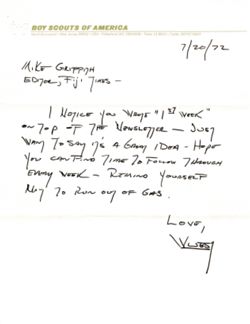 BOY SCOUTS OF AMERICA
7/20/72
MIKE GRIFFITH
EDITOR, FIJI TIMES —
I NOTICE YOU WROTE "1ST WEEK"
ON TOP OF THE NEWSLETTER — JUST
WANT TO SAY IT'S A GOOD IDEA — HOPE
YOU CAN FIND TIME TO FOLLOW THROUGH
EVERY WEEK — REMIND YOURSELF
NOT TO RUN OUT OF GAS.
LOVE,